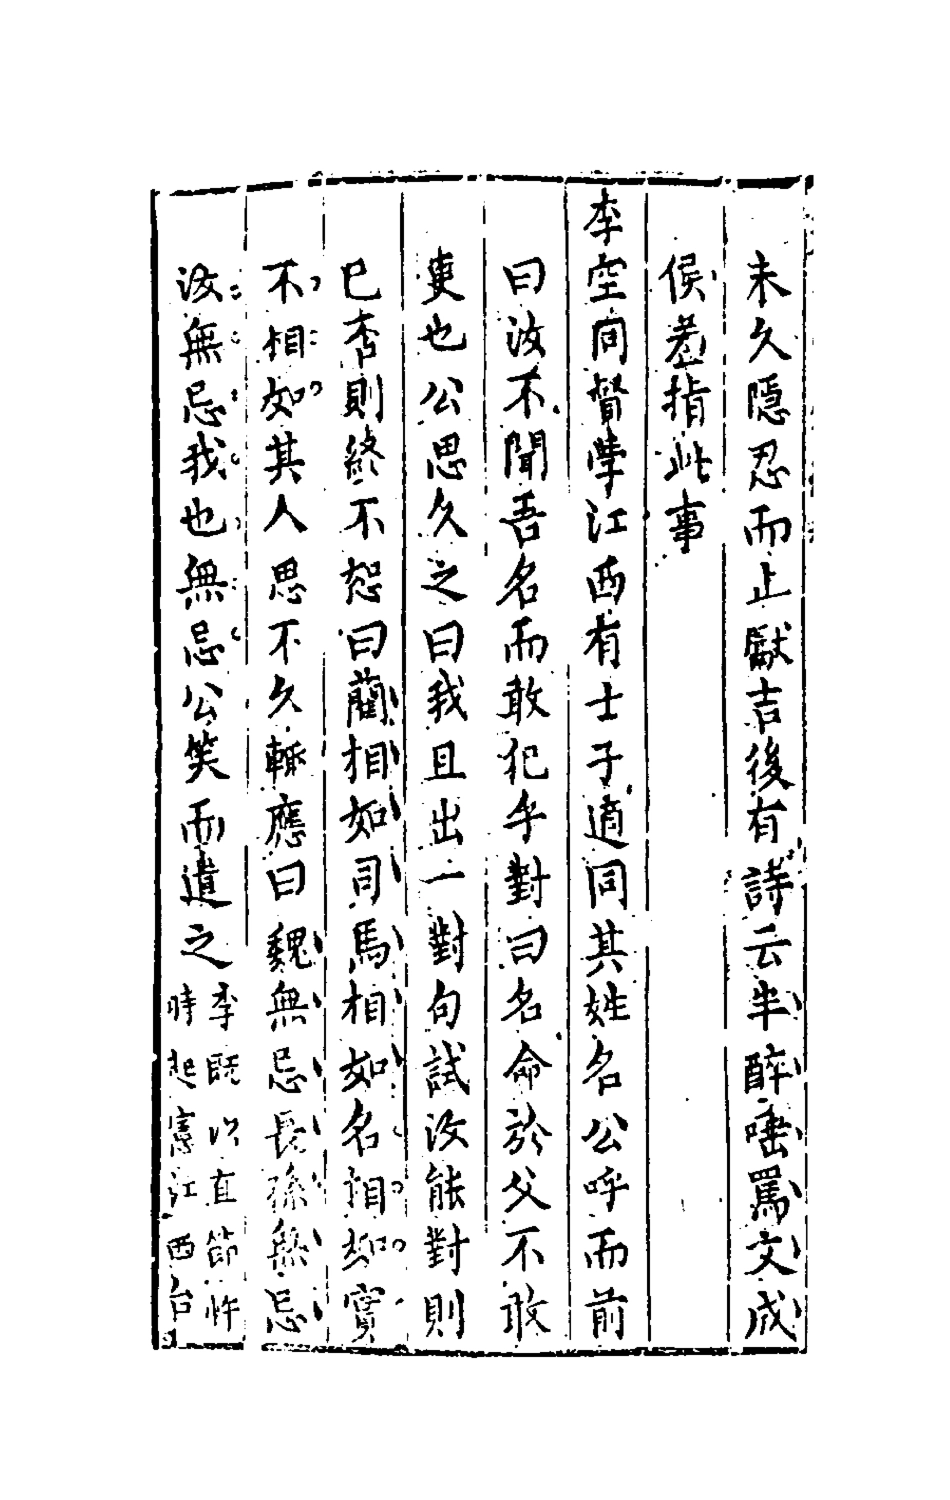 未久隱忍而止獻吉後有詩云半醉唾罵文成
侯葢指此事
李空同督學江西有士子適同其姓名公呼而前
曰汝不聞吾名而敢犯乎對曰名命於父不敢
更也公思久之曰我且出一對句試汝能對則
已否則終不恕曰藺相如司馬相如名相如實
不相如其人思不久輙應曰魏無忌長孫無忌
汝無忌我也無忌公笑而遣之李既以直節忤
時起憲江西台